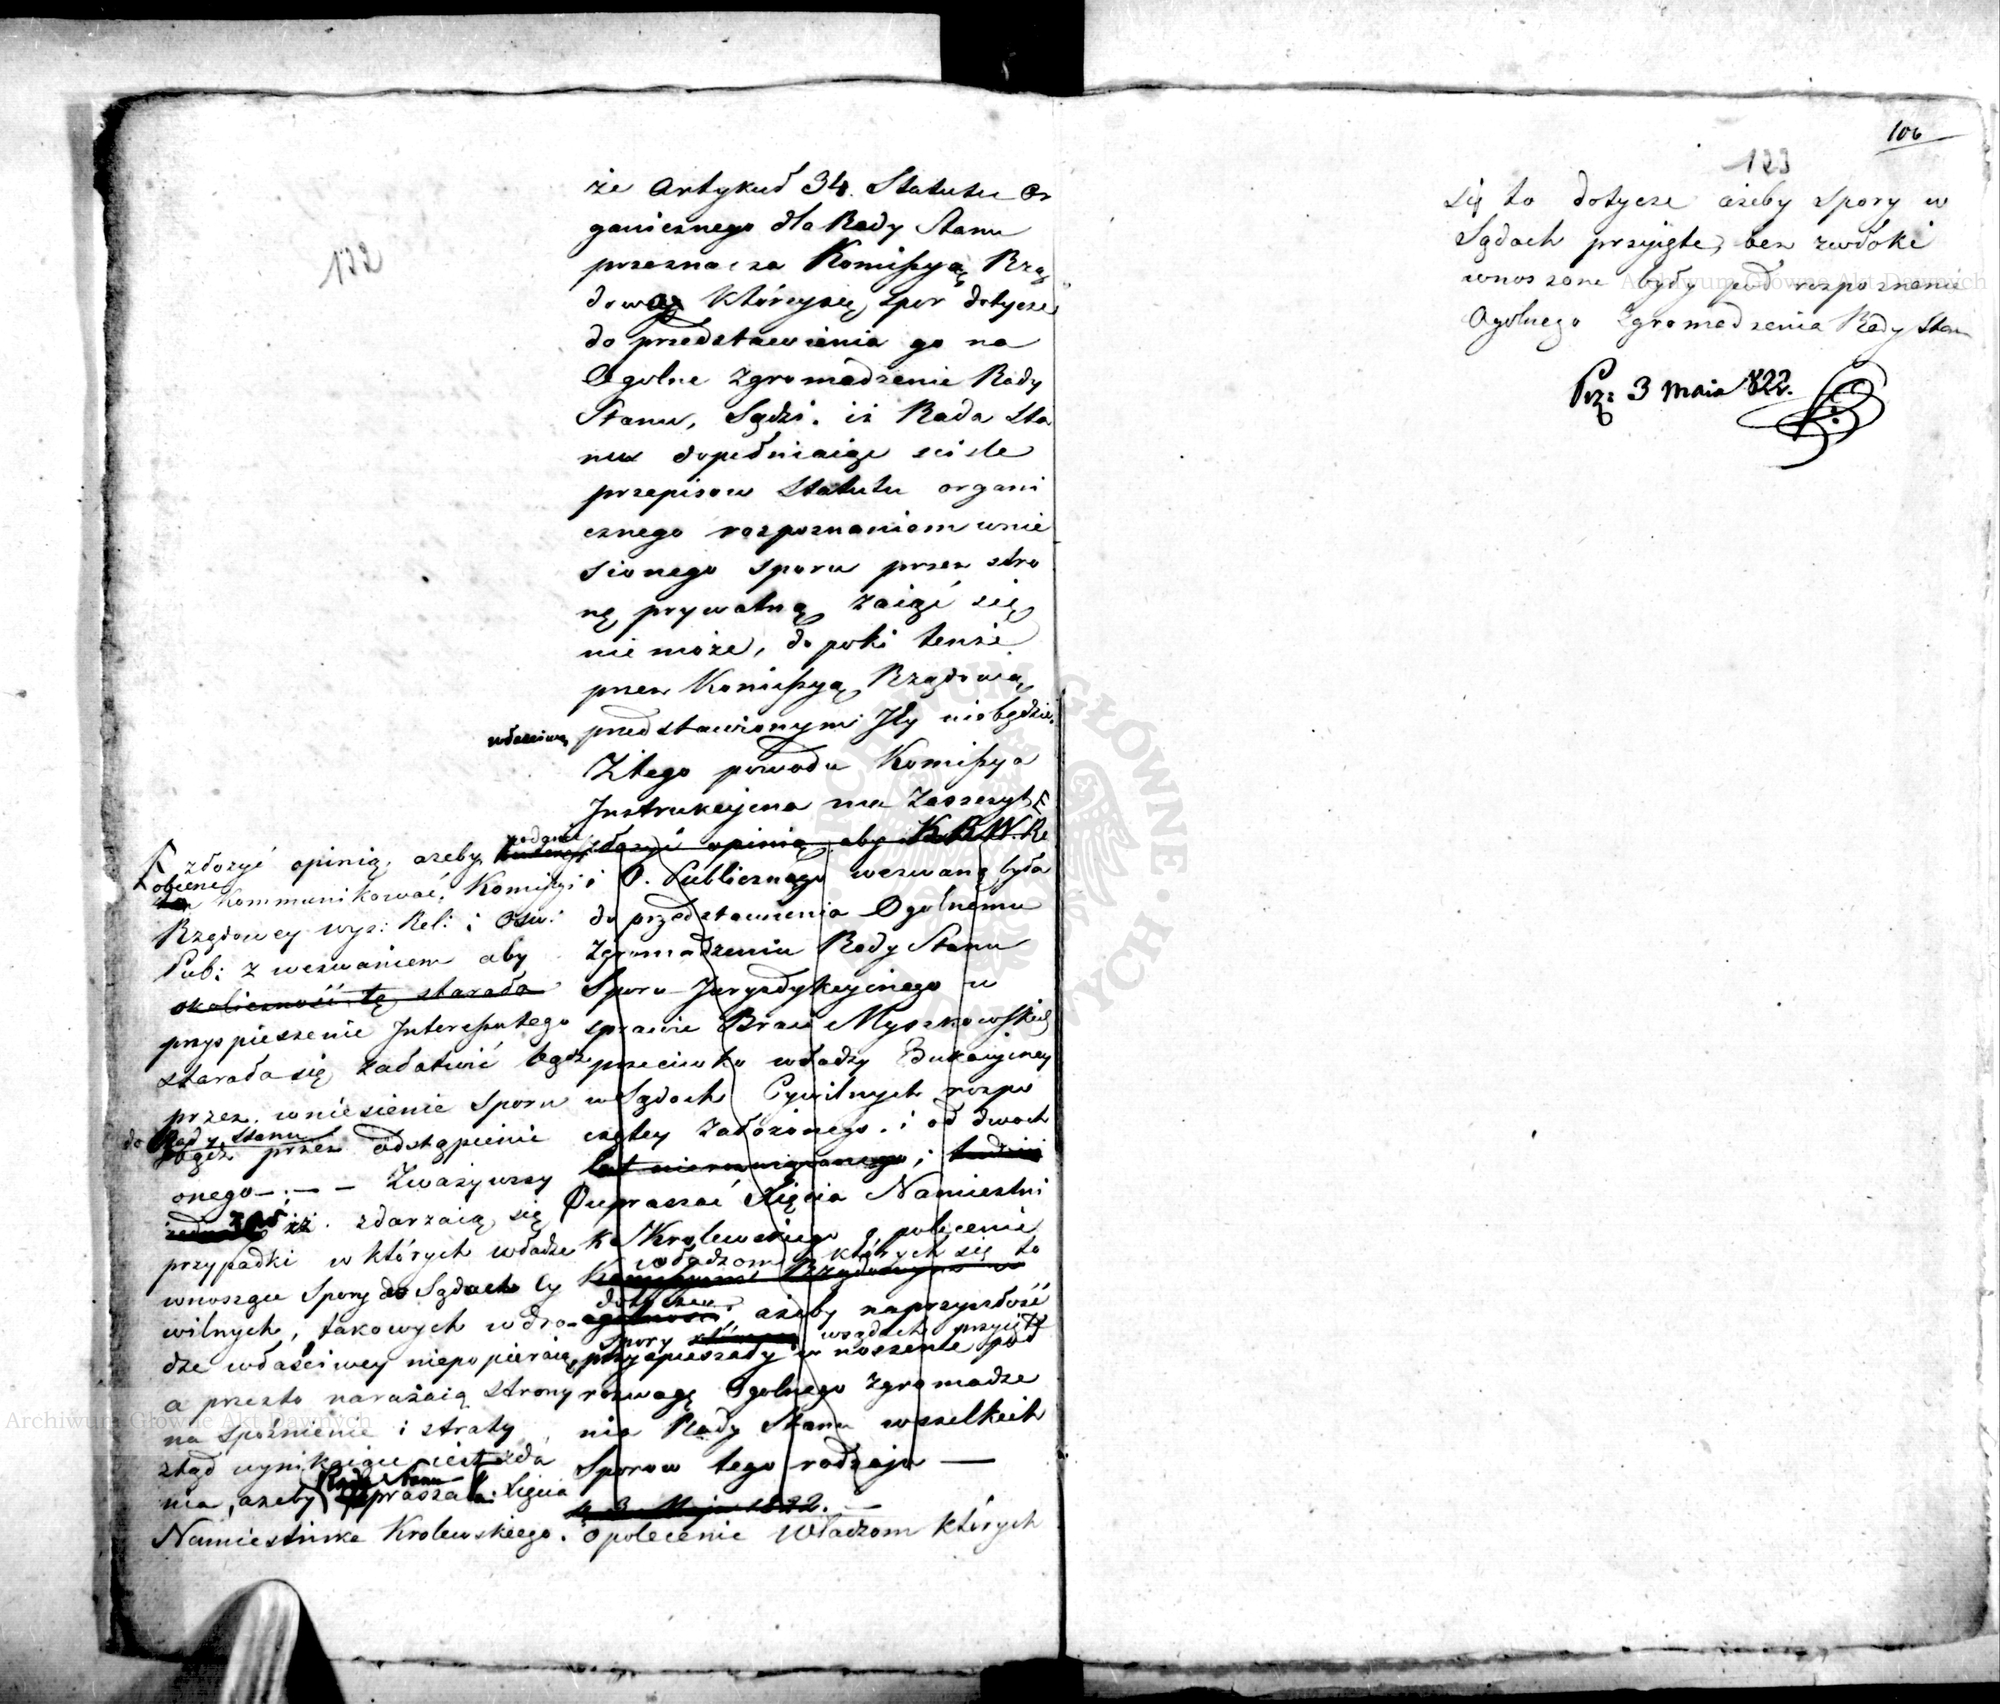 122
że Artykuł 34. Statutu Or
ganicznego dla Rady Stanu
przeznacza Komissyą Rzą
dową któreysię spor dotycze
do przedstawienia go na
Ogolne Zgromadzenie Rady
Stanu, Sądzi, iż Rada Sta
nu dopełniaiąc sciśle
przepisow Statutu organi
cznego rozpoznaniem wnie
sionego sporu przez stro
nę prywatną zaiąć się
nie może, do poki tenże
przez Komissyą Rządową
właściwą
przedstawionym Jey niebędzie.
Z tego powodu Komissya
Instrukcyjna ma zaszczyt
złożyć opinią aby K.R.W.Re
i O. Publicznego wezwaną była
do przedstawienia Ogólnemu
Zgromadzeniu Rady Stanu
Sporu Jurysdykcyinego w
sprawie Braci Myszkowskich
przeciwko władzy Edukacyiney
w Sądach Cywilnych rozpo
czętey założonego. i od dwoch
lat
upraszać Xięcia Namiestni
ka Krolewskiego o polecenie
władzom których się to
Rządowym w
dotycze,
ażeby naprzyszłość
spory
w sądach przyięte
przyspieszały wnoszenie pod
rozwagę Ogolnego Zgromadze
nia Rady Stanu wszelkich
Sporow tego rodzaju —
d. 3 Maja 1822. —
o polecenie Władzom których
złożyć opinią, ażeby podanie
obecne
kommunikować Komissyi
Rządowey wyz: Rel: i Osw:
Pub: z wezwaniem aby
okoliczność tę starała
przyspieszenie Interessu tego
starała się załatwić bądz
przez wniesienie sporu
do Rady Stanu
bądz przez odstąpienie
onego — . — — Zważywszy
iż zdarzaią się
przypadki w których władze
wnosząc Spory do Sądach Cy
wilnych, takowych w dro-
dze właściwey niepopieraią
a przezto narażaią strony
na spoznienie i straty
ztąd wynikaiące iest zda
nia, ażeby Rada Stanu
upraszała Xięcia
Namiestnika Krolewskiego.
106
123
się to dotycze ażeby spory w
Sądach przyięte, bez zwłoki
wnoszone były pod rozpoznanie
Ogolnego Zgromadzenia Rady Stanu
3 Maia 822.
Archiwum Główne Akt Dawnych
Archiwum Główne Akt Dawnych